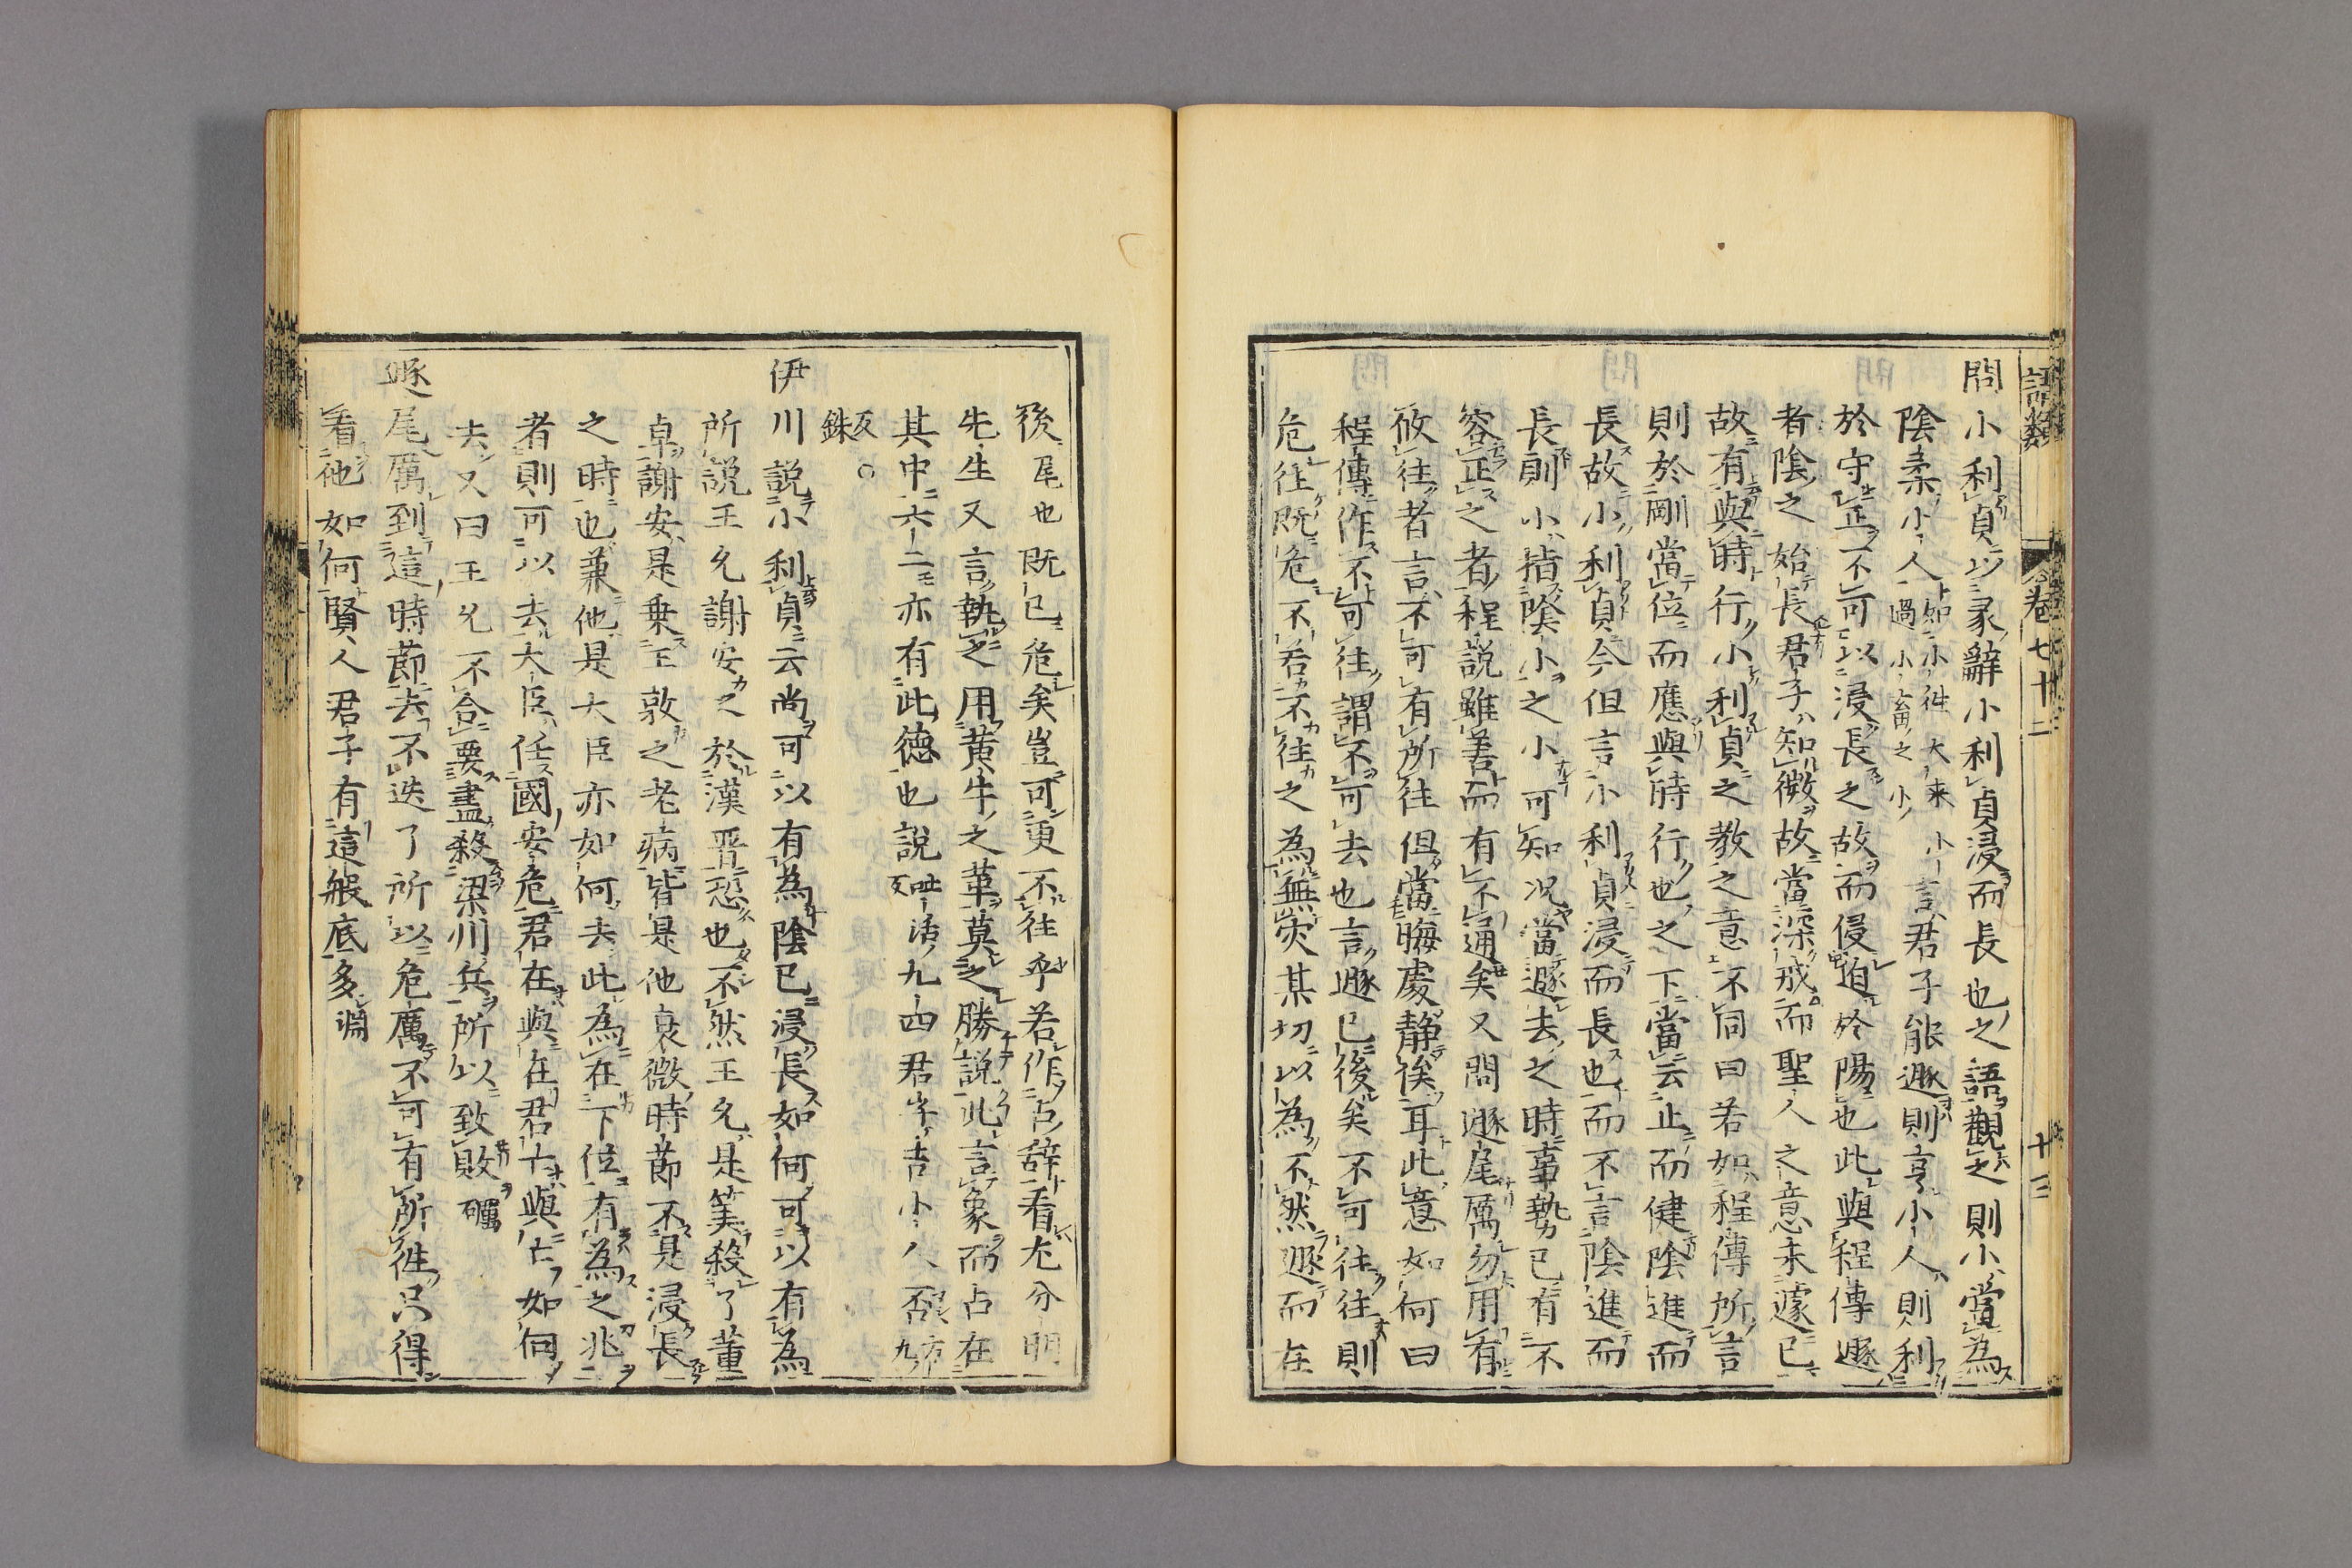 語類 卷七十二 十三
問小利貞以彖辭小利貞浸而長也之語觀之則小當為
陰柔小人如小往大來小過小畜之小言君子能遯則亨小人則利
於守正不可以浸長之故而侵迫於陽也此與程傳遯
者陰之始長君子知微故當深戒而聖人之意未遽已
故有與時行小利貞之教之意不同曰若如程傳所言
則於剛當位而應與時行也之下當云止而健陰進而
長故小利貞今但言小利貞浸而長也而不言陰進而
長則小指陰小之小可知況當遯去之時事勢已有不
容正之者程說雖善而有不通矣又問遯尾厲勿用有
攸往者言不可有所往但當晦處靜俟耳此意如何曰
程傳作不可往謂不可去也言遯已後矣不可往往則
危往既危不若不往之為無災某切以為不然遯而在
後尾也既已危矣豈可更不往乎若作占辭看尤分明
先生又言執之用黃牛之革莫之勝說此言象而占在
其中六二亦有此德也說吐活反九四君子吉小人否方九
反銖○
伊川說小利貞云尚可以有為陰已浸長如何可以有為
所說王允謝安之於漢晉恐也不然王允是筭殺了董
卓謝安是乗王敦之老病皆是他衰微時節不是浸長
之時也兼他是大臣亦如何去此為在下位有為之兆
者則可以去大臣任國安危君在與在君亡與亡如何
去又曰王允不合要盡殺梁州兵所以致敗礪
遯尾厲到這時節去不迭了所以危厲不可有所往只得
看他如何賢人君子有這般底多淵